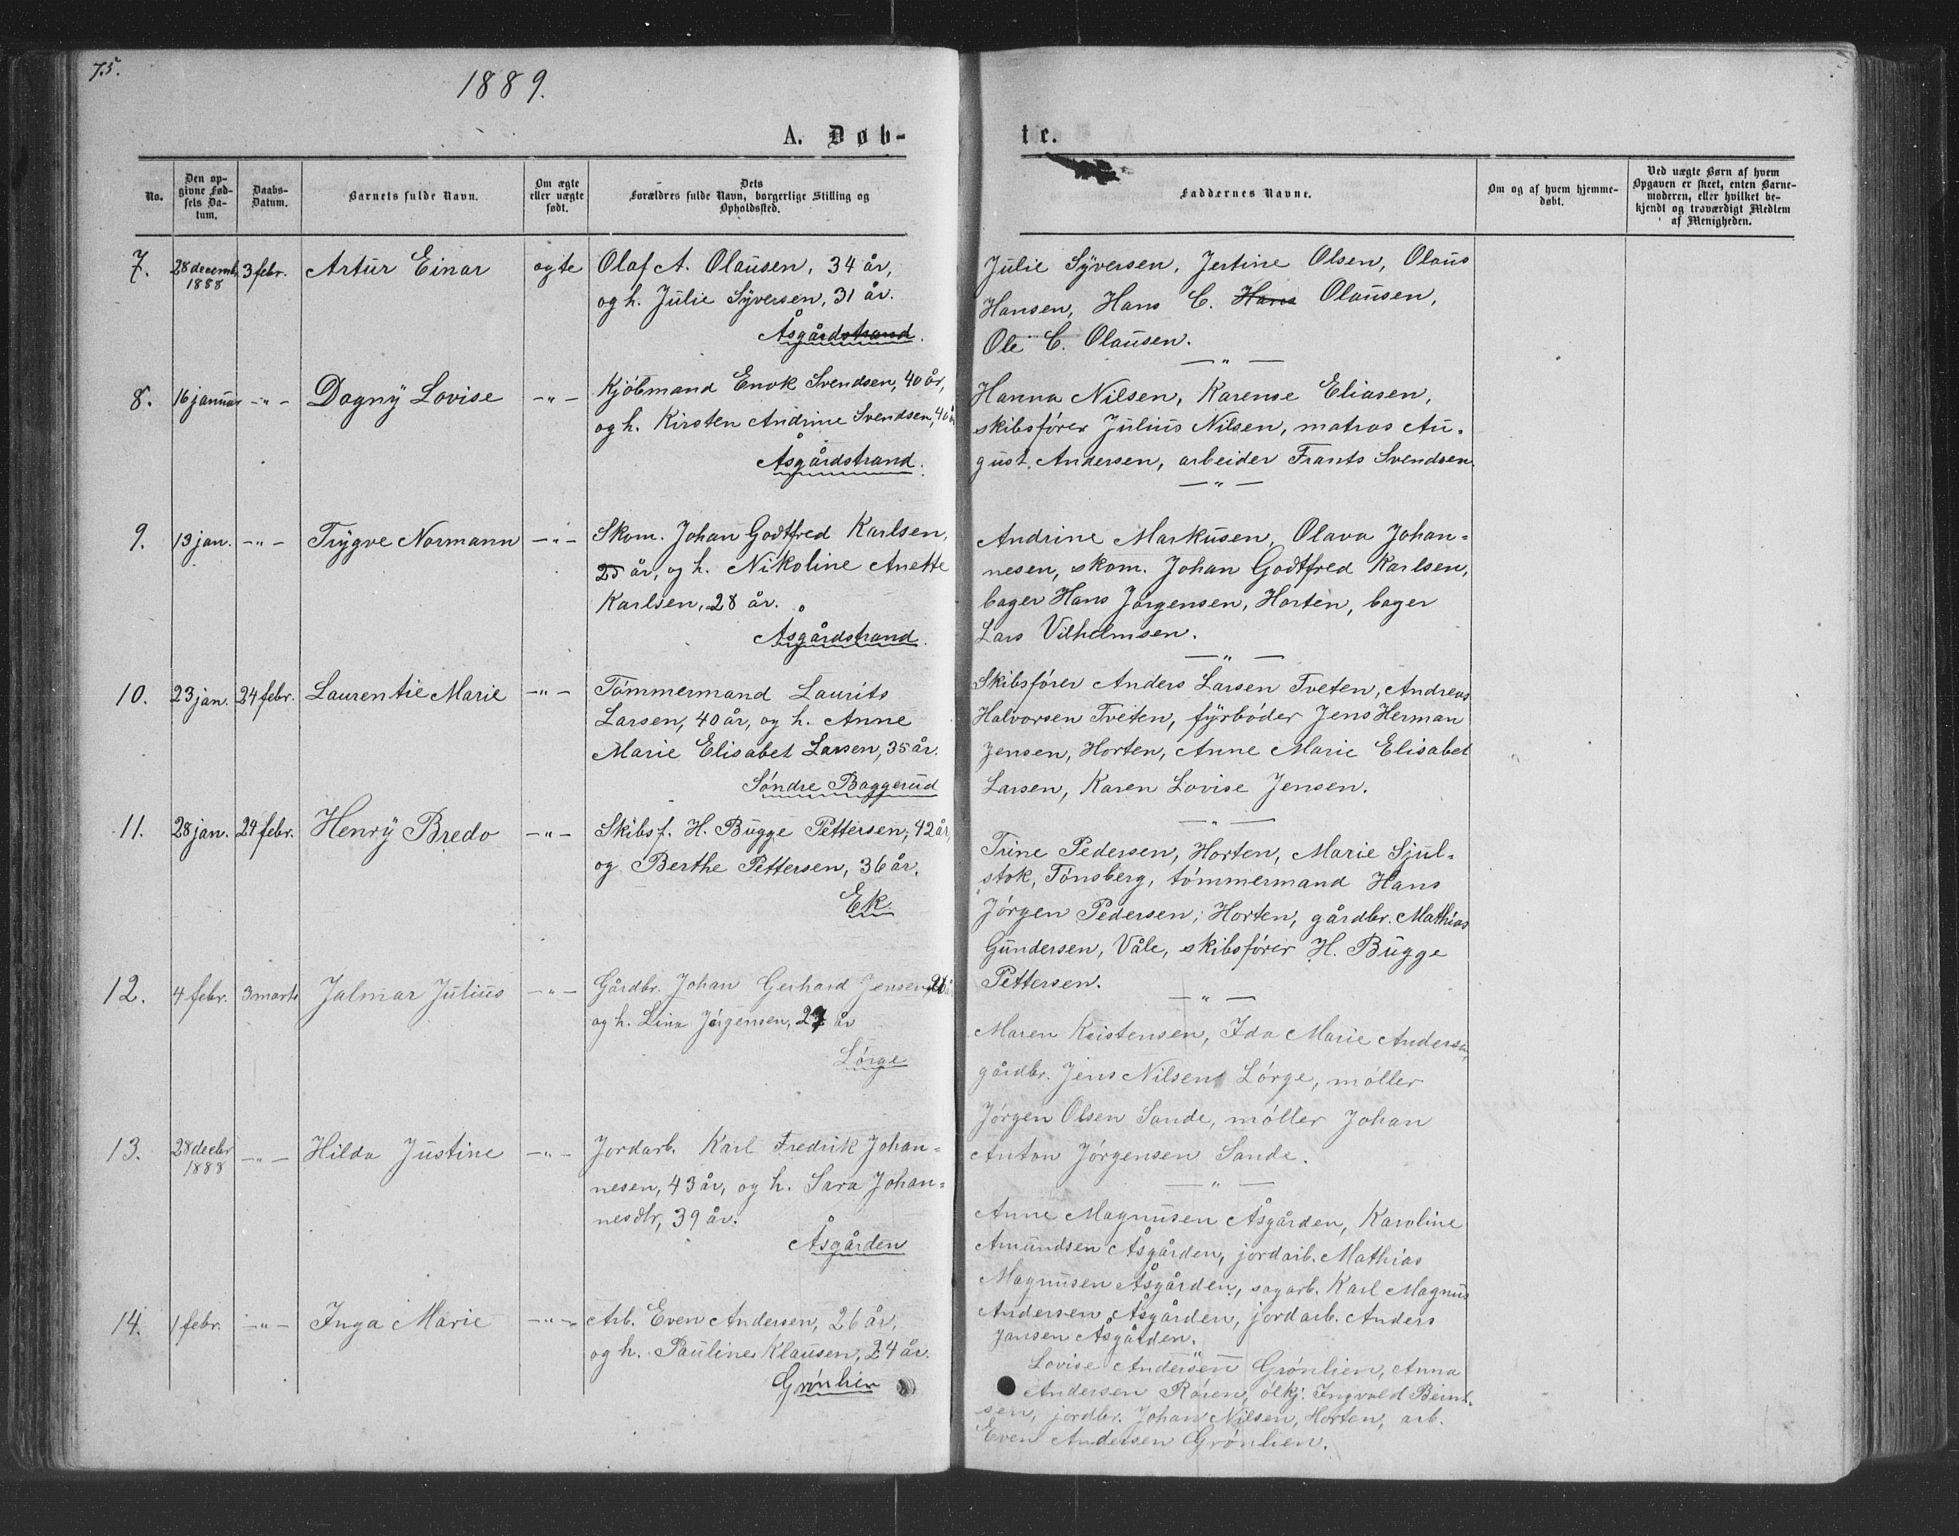 75.
1889.
A. Døb-
te.
No.
Den op-
givne Fød-
sels Da-
tum.
Daabs-
Datum.
Barnets fulde Navn.
Om ægte
eller uægte
født.
Dets
Forældres fulde Navn, borgerlige Stilling og
Opholdssted.
Faddernes Navne.
Om og af hvem hjemme-
døbt.
Ved uægte Børn af hvem
Opgaven er skeet, enten Barne-
moderen, eller hvilket be-
kjendt og troværdigt Medlem
af Menigheden.
7.
28 decemb.
1888
3 febr.
Artur Einar
ægte
Olaf A. Olausen, 34 år,
og h. Julie Syversen, 31 år.
Åsgårdstrand.
Julie Syversen, Jertine Olsen, Olaus
Hansen, Hans C. Hans Olausen,
Ole C. Olausen.
—„—
8.
16 januar
—„—
Dagny Lovise
—„—
Kjøbmand Enok Svendsen, 40 år,
og h. Kirsten Andrine Svendsen, 40 år
Åsgårdstrand.
Hanna Nilsen, Karense Eliasen,
skibsfører Julius Nilsen, matros Au-
gust Andersen, arbeider Frants Svendsen
—„—
9.
13 jan.
—„—
Trygve Normann
—„—
Skom. Johan Godtfred Karlsen,
25 år, og h. Nikoline Anette
Karlsen, 28 år.
Åsgårdstrand.
Andrine Markusen, Olava Johan=
nesen, skom. Johan Godtfred Karlsen,
bager Hans Jørgensen, Horten, bager
Lars Vilhelmsen.
—„—
10.
23 jan.
24 febr.
Laurentie Marie
—„—
Tømmermand Laurits
Larsen, 40 år, og h. Anne
Marie Elisabet Larsen, 35 år.
Søndre Baggerud
Skibsfører Anders Larsen Tveten, Andreas
Halvorsen Tveten, fyrbøder Jens Herman
Jensen, Horten, Anne Marie Elisabet
Larsen, Karen Lovise Jensen.
—„—
11.
28 jan.
24 febr.
Henry Bredo
—„—
Skibsf. H. Bugge Pettersen, 42 år,
og Berthe Pettersen, 36 år.
Ek.
Trine Pedersen, Horten, Marie Sjul=
stok, Tønsberg, tømmermand Hans
Jørgen Pedersen, Horten, gårdbr. Mathias
Gundersen, Våle, skibsfører H. Bugge
Pettersen.
—„—
12.
4 febr.
3 marts
Jalmar Julius
—„—
Gårdbr. Johan Gerhard Jensen,
og h. Lina Jørgensen, 27 år
Lørge
Maren Kristensen, Ida Marie Andersen,
gårdbr. Jens Nilsen Lørge, møller
Jørgen Olsen Sande, møller Johan
Anton Jørgensen Sande.
—„—
13.
28 decbr
1888
—„—
Hilda Justine
—„—
Jordarb. Karl Fredrik Johan=
nesen, 43 år, og h. Sara Johan=
nesdtr, 39 år.
Åsgården
Anne Magnusen Åsgården, Karoline
Amundsen Åsgården, jordarb. Mathias
Magnusen Åsgården, sagarb. Karl Magnus
Andersen Åsgården, jordarb. Anders
Jansen Åsgården.
„
14.
1 febr.
—„—
Inga Marie
—„—
Arb. Even Andersen, 26 år,
og h. Pauline Klausen, 24 år.
Grønlien
Lovise Andersen Grønlien, Anna
Andersen Røren, ølkj. Ingvald Bernt-
sen, jordbr. Johan Nilsen, Horten, arb.
Even Andersen Grønlien.